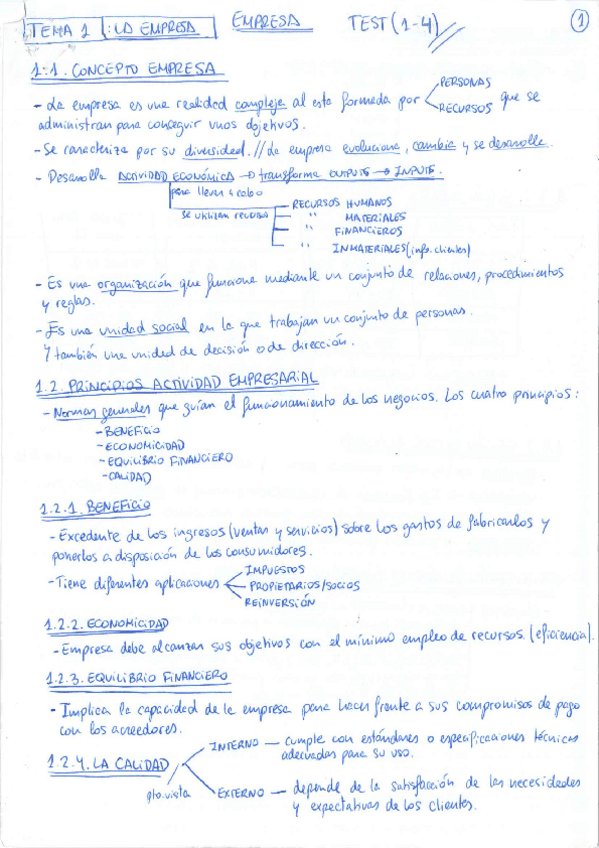 TEMA 1: LA EMPRESA EMPRESA TEST (1-4) 1
1.1. CONCEPTO EMPRESA
- La empresa es una realidad compleja al esta formada por PERSONAS RECURSOS que se
administran para conseguir unos objetivos.
- Se caracteriza por su diversidad. // La empresa evoluciona, cambia y se desarrolla.
- Desarrolla ACTIVIDAD ECONÓMICA → transforma OUTPUTS → INPUTS.
para llevar a cabo
se utilizan recursos RECURSOS HUMANOS
" MATERIALES
" FINANCIEROS
" INMATERIALES (info. clientes)
- Es una organización que funciona mediante un conjunto de relaciones, procedimientos
y reglas.
- Es una unidad social en la que trabajan un conjunto de personas.
Y también una unidad de decisión o de dirección.
1.2. PRINCIPIOS ACTIVIDAD EMPRESARIAL
- Normas generales que guían el funcionamiento de los negocios. Los cuatro principios:
- BENEFICIO
- ECONOMICIDAD
- EQUILIBRIO FINANCIERO
- CALIDAD
1.2.1. BENEFICIO
- Excedente de los ingresos (ventas y servicios) sobre los gastos de fabricarlos y
ponerlos a disposición de los consumidores.
- Tiene diferentes aplicaciones IMPUESTOS
PROPIETARIOS/SOCIOS
REINVERSIÓN
1.2.2. ECONOMICIDAD
- Empresa debe alcanzar sus objetivos con el mínimo empleo de recursos. (eficiencia).
1.2.3. EQUILIBRIO FINANCIERO
- Implica la capacidad de la empresa para hacer frente a sus compromisos de pago
con los acreedores.
1.2.4. LA CALIDAD
pto. vista
INTERNO — cumple con estándares o especificaciones técnicas
adecuadas para su uso.
EXTERNO — depende de la satisfacción de las necesidades
y expectativas de los clientes.